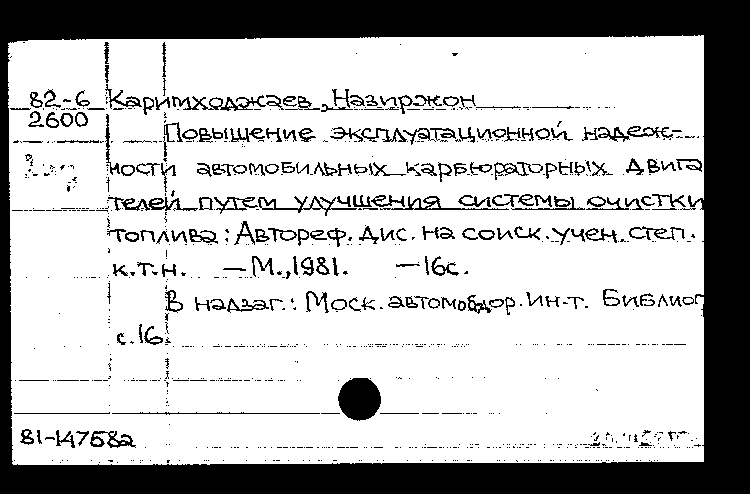 82-6 Каримходжаев, Назиржон
2600
Повышение эксплуатационной надеж-
ности автомобильных карбюраторных двига
телей путем улучшения системы очистки
топлива: Автореф. дис. на соиск. учен. степ.
к.т.н. — М., 1981. — 16с.
В надзаг.: Моск. автомобдор. ин-т. Библиог
с.16.
81-14758а